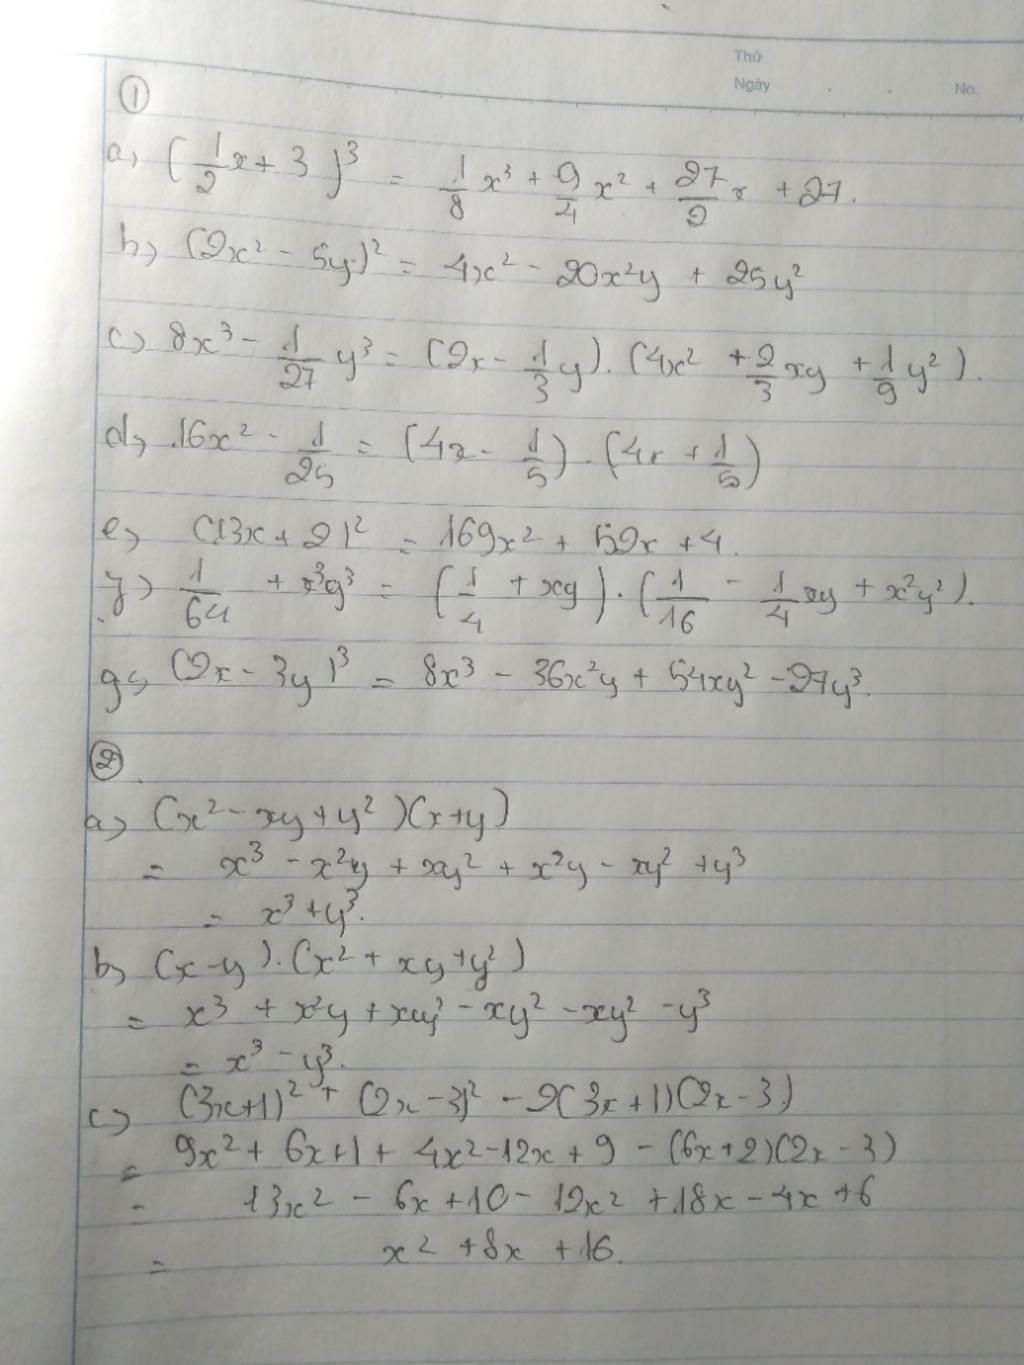 Thứ
Ngày . . No.
①
a, (1/2 x + 3)³ = 1/8 x³ + 9/4 x² + 27/2 x + 27.
b, (2x² - 5y)² = 4x² - 20x²y + 25y²
c, 8x³ - 1/27 y³ = (2x - 1/3 y).(4x² + 2/3 xy + 1/9 y²).
d, 16x² - 1/25 = (4x - 1/5).(4x + 1/5)
e, (13x + 2)² = 169x² + 52x + 4.
f, 1/64 + x³y³ = (1/4 + xy).(1/16 - 1/4 xy + x²y²).
g, (2x - 3y)³ = 8x³ - 36x²y + 54xy² - 27y³.
②
a, (x² - xy + y²)(x+y)
= x³ - x²y + xy² + x²y - xy² + y³
= x³ + y³.
b, (x-y).(x² + xy + y²)
= x³ + x²y + xy² - xy² - xy² - y³
= x³ - y³.
c, (3x+1)² + (2x-3)² - 2(3x+1)(2x-3)
= 9x² + 6x+1 + 4x² - 12x + 9 - (6x+2)(2x-3)
= 13x² - 6x + 10 - 12x² + 18x - 4x + 6
= x² + 8x + 16.